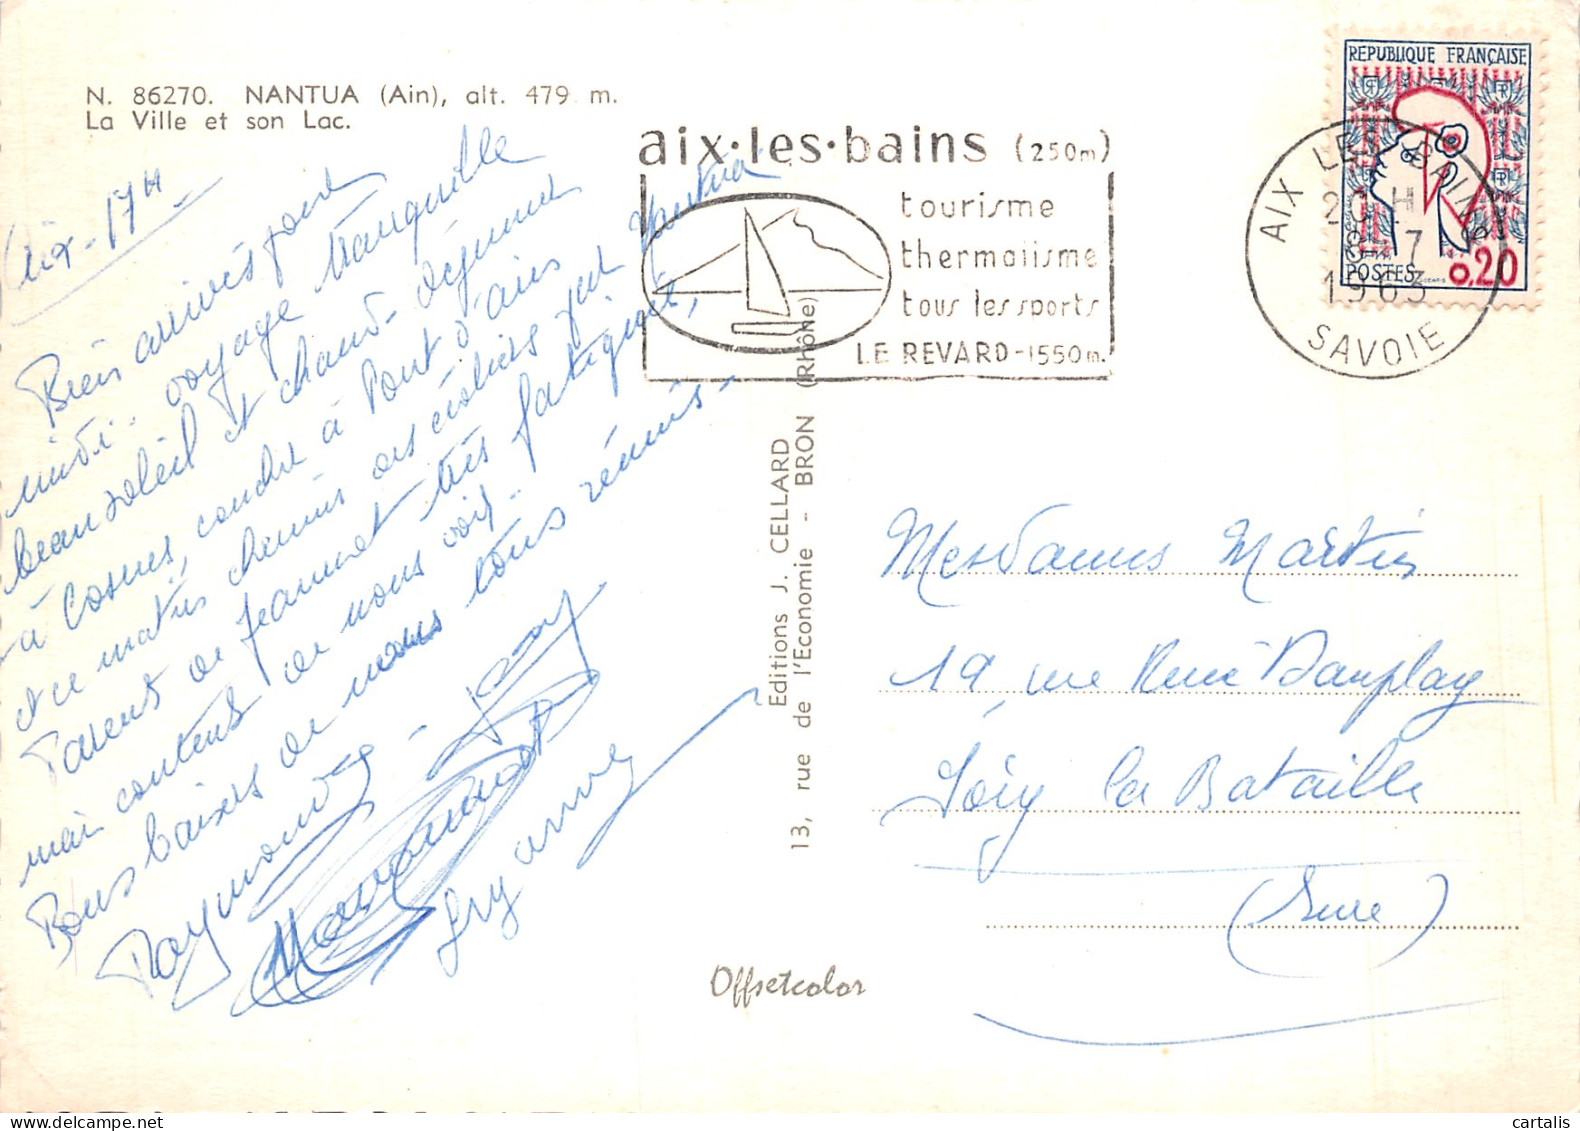 N. 86270. NANTUA (Ain), alt. 479 m.
La Ville et son Lac.
Aix - 17H
Bien arrivés pour
midi. voyage tranquille
beau soleil et chaud - déjeuner
à Cosnes, coucher à Pont d'ain
et ce matin chemin des écoliers par Nantua
Parents de Jeannot très fatigués,
mais contents de nous voir..
Bons baisers de nous tous réunis -
Raymonde -
aix·les·bains (250m)
tourisme
thermalisme
tous les sports
LE REVARD-1550m.
REPUBLIQUE FRANÇAISE
POSTES
0,20
AIX LES BAINS
20H
8-7
1963
SAVOIE
Editions J. CELLARD
13, rue de l'Economie - BRON (Rhône)
Mesdames Martin
19 rue René Dauplay
Ivry la Bataille
(Eure)
Offsetcolor
cartalis